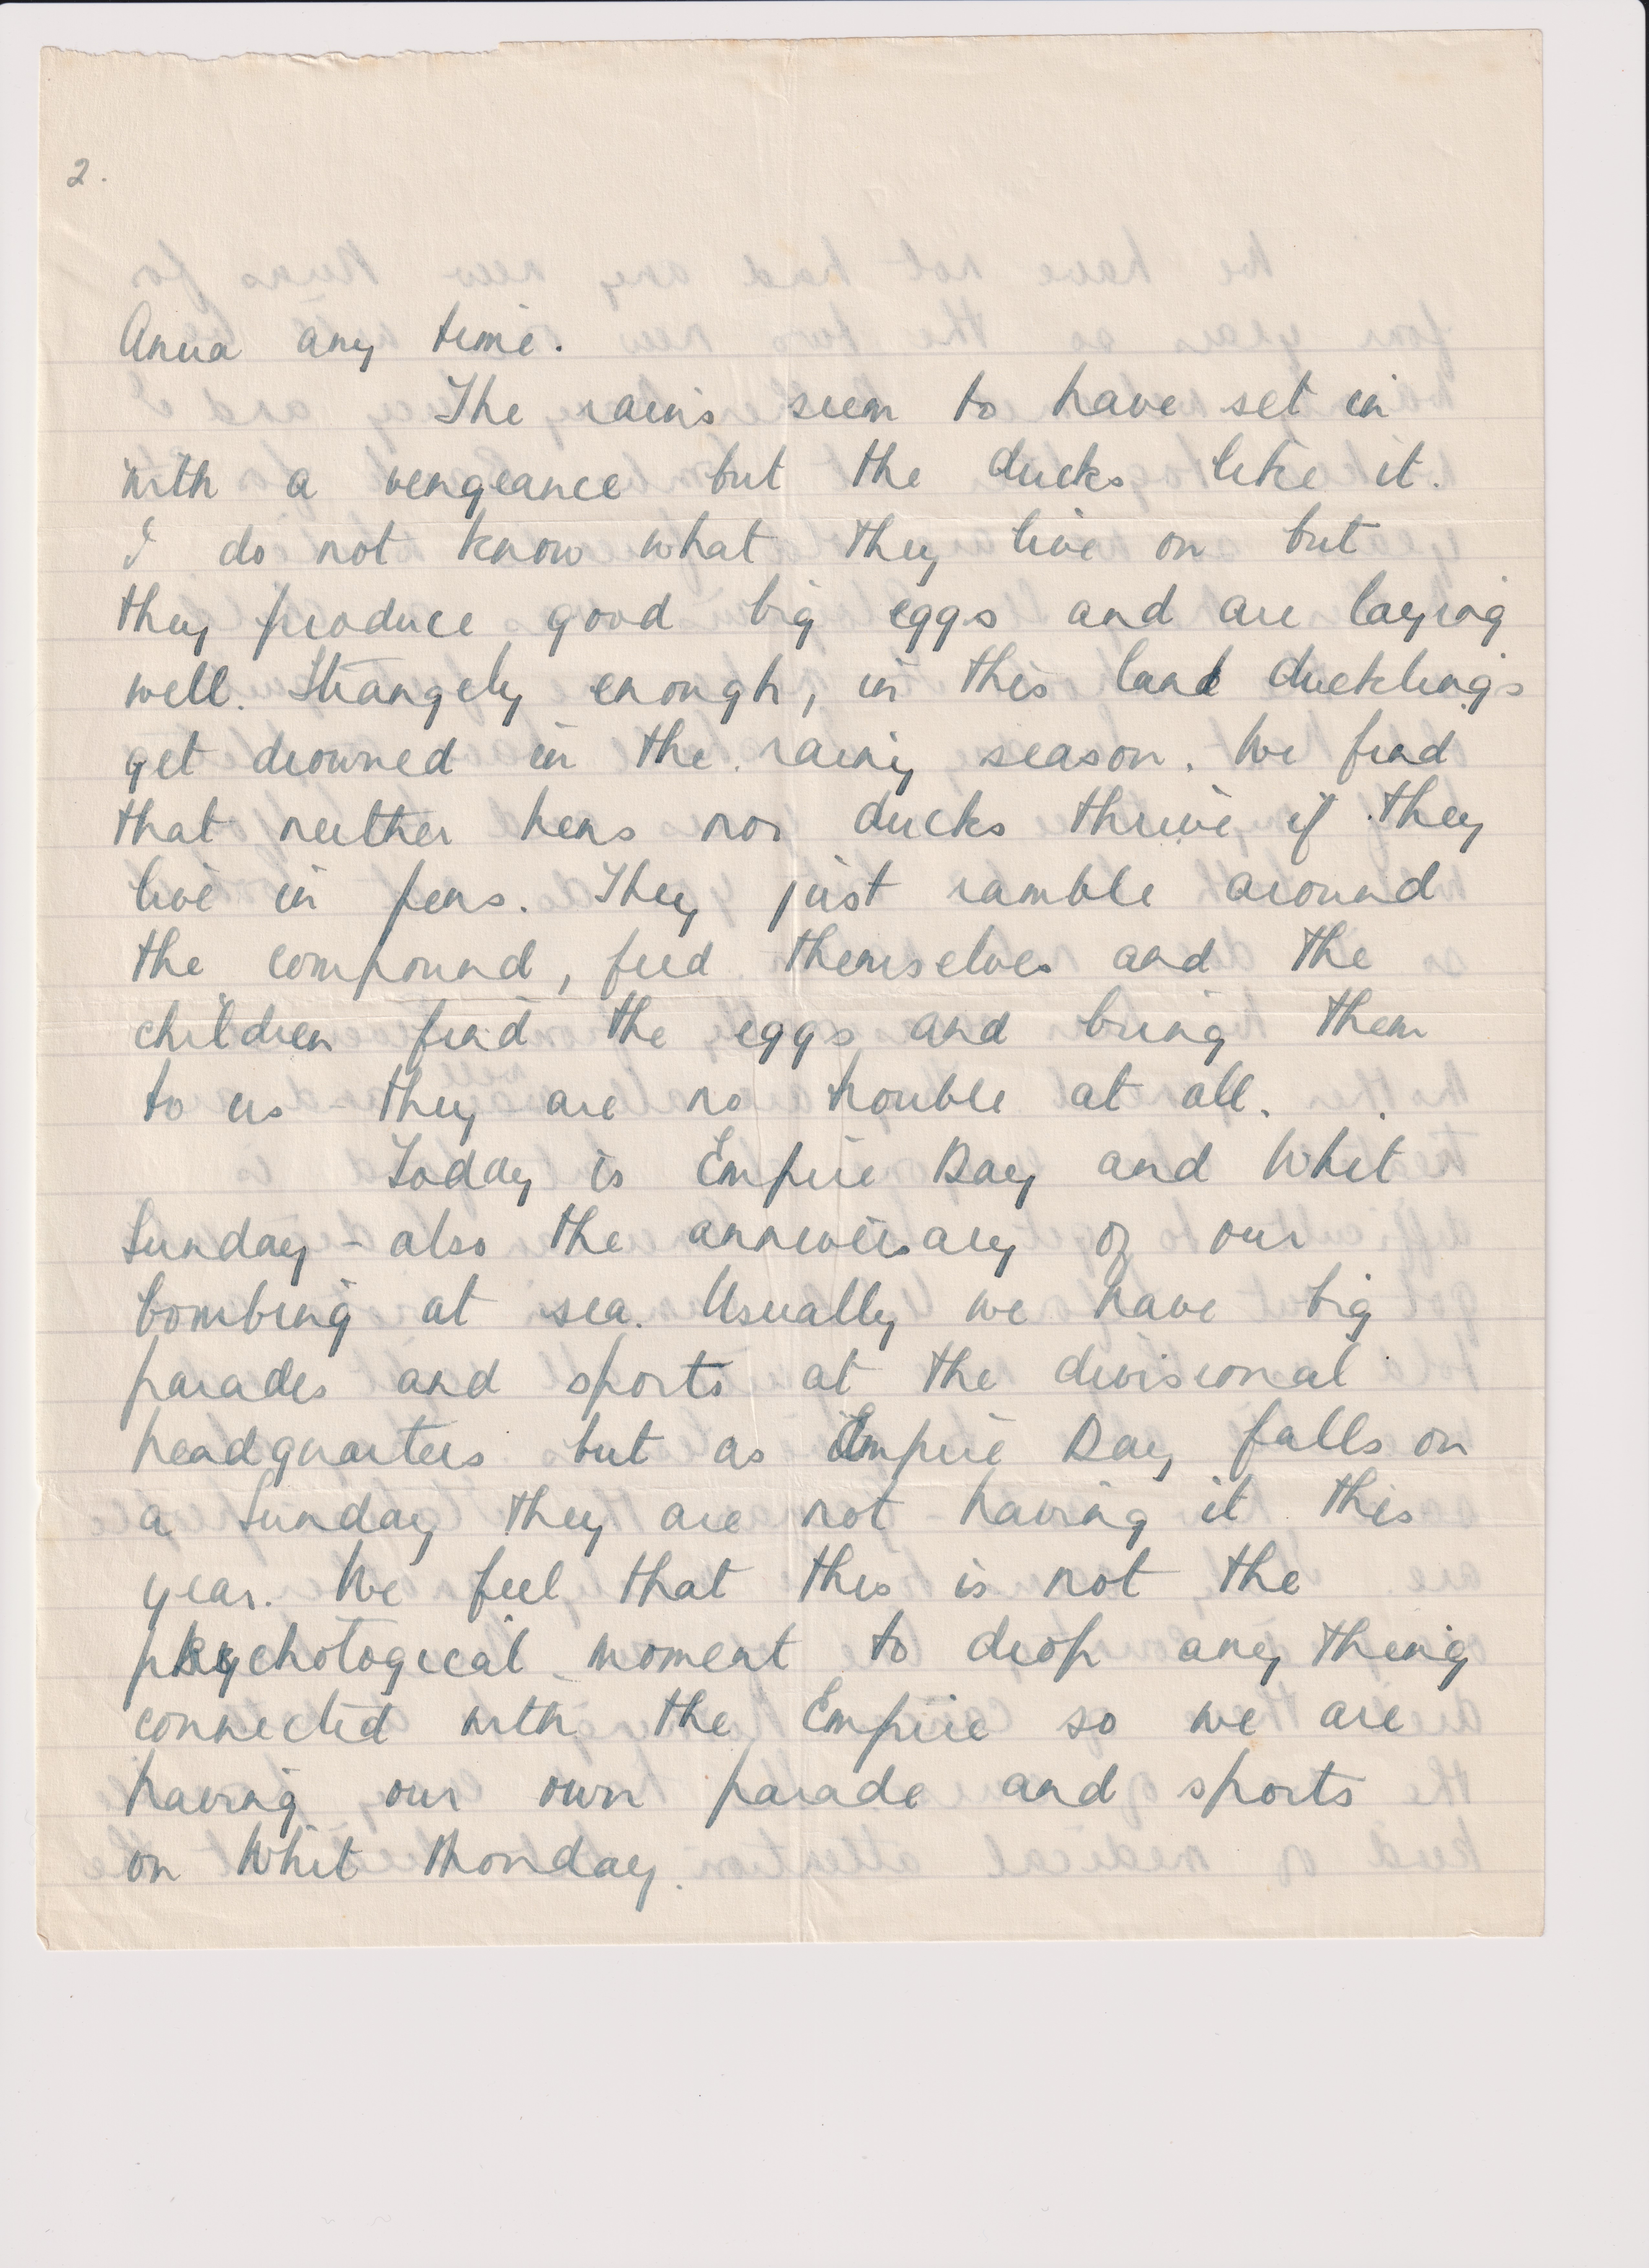 2.
Anua any time.
The rains seem to have set in
with a vengeance but the ducks like it.
I do not know what they live on but
they produce good big eggs and are laying
well. Strangely enough, in this land ducklings
get drowned in the rainy season. We find
that neither hens nor ducks thrive if they
live in pens. They just ramble around
the compound, feed themselves and the
children find the eggs and bring them
to us - they are no trouble at all.
Today is Empire Day and Whit
Sunday - also the anniversary of our
bombing at sea. Usually we have big
parades and sports at the divisional
headquarters but as Empire Day falls on
a Sunday they are not having it this
year. We feel that this is not the
psychological moment to drop any thing
connected with the Empire so we are
having our own parade and sports
on Whit Monday.